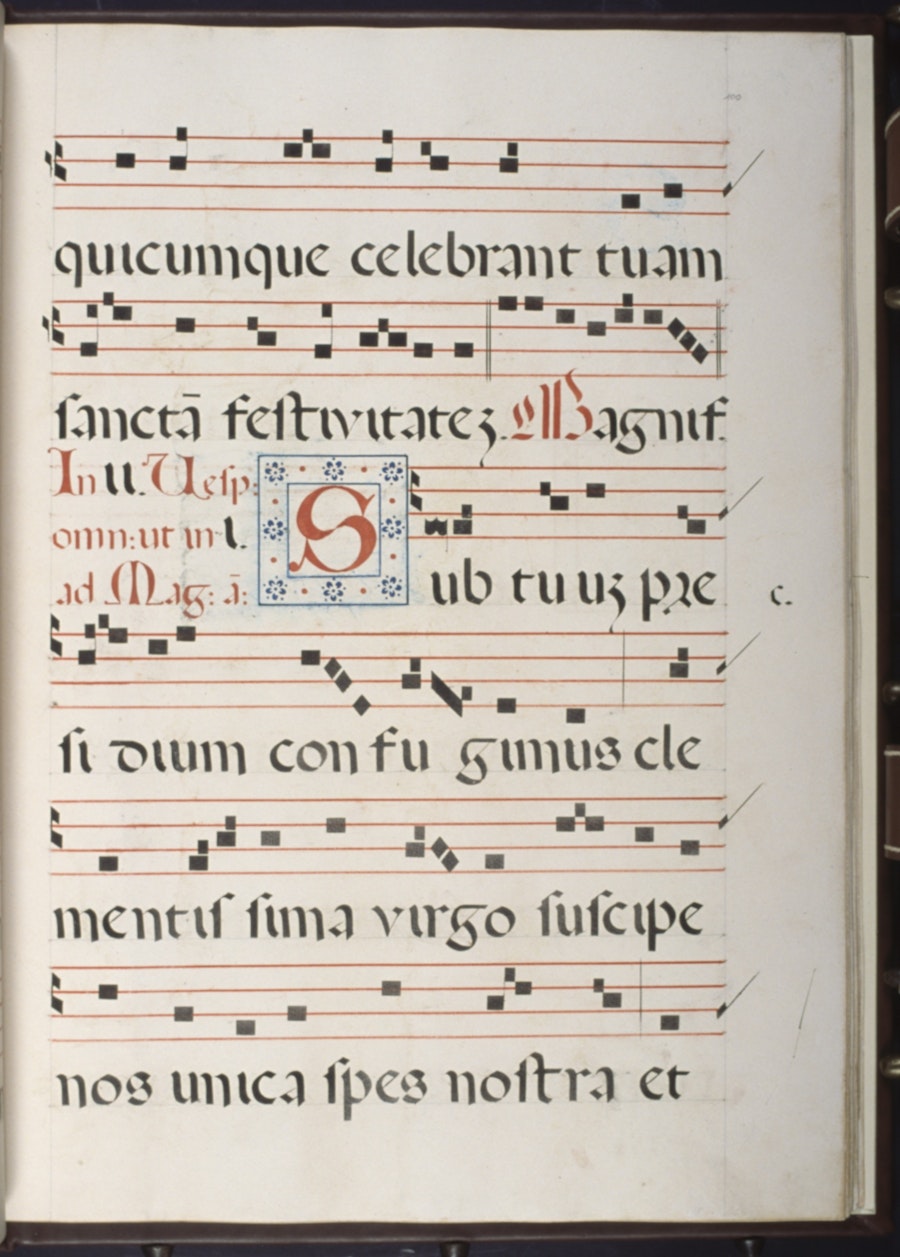 100
quicumque celebrant tuam
ſanctā feſtivitateʒ. Magnif.
In II. Veſp:
omn: ut in I.
ad Mag: ā:
Sub tuuʒ pre
c.
ſi dium confu gimus cle
mentiſ ſima virgo ſuſcipe
nos unica ſpes noſtra et